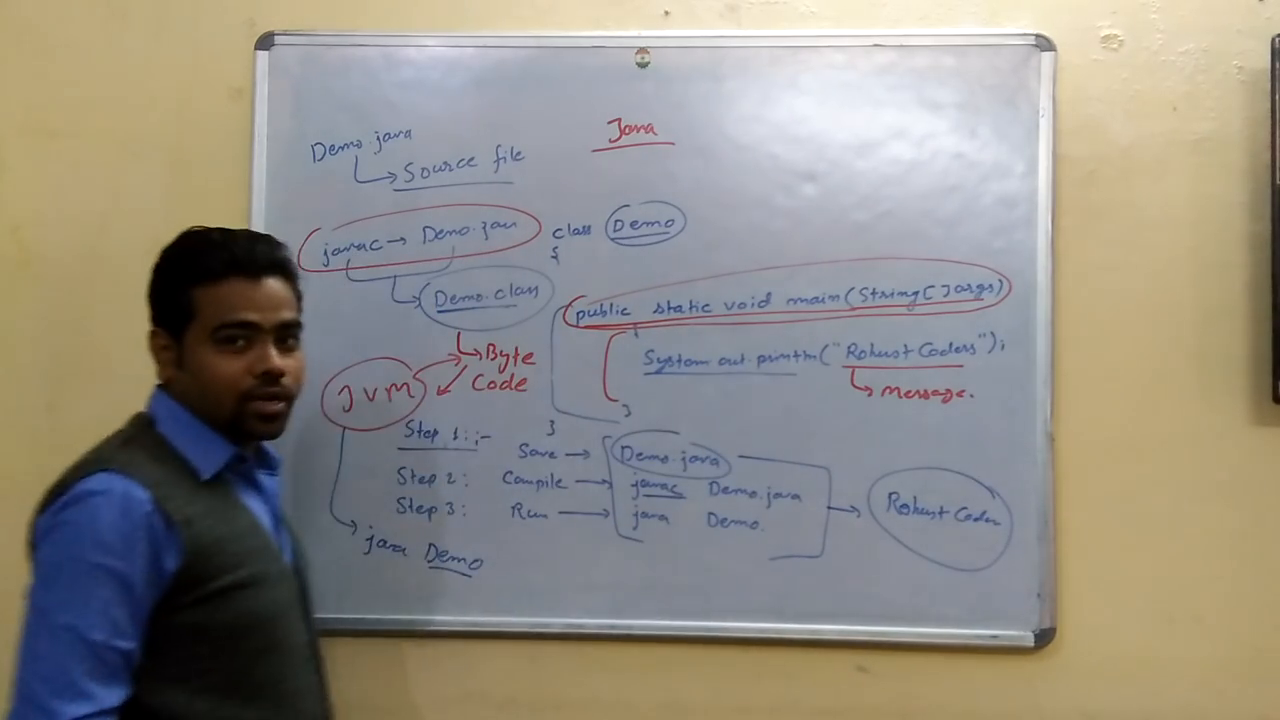 Java
Demo.java
Source file
javac → Demo.java
Demo.class
Byte
Code
JVM
java Demo
class Demo
{
public static void main(String[]args)
{
System.out.println("Robust Coders");
Message.
}
}
Step 1:;-
Save → Demo.java
Step 2: Compile → javac Demo.java
Step 3: Run → java Demo.
Robust Coder